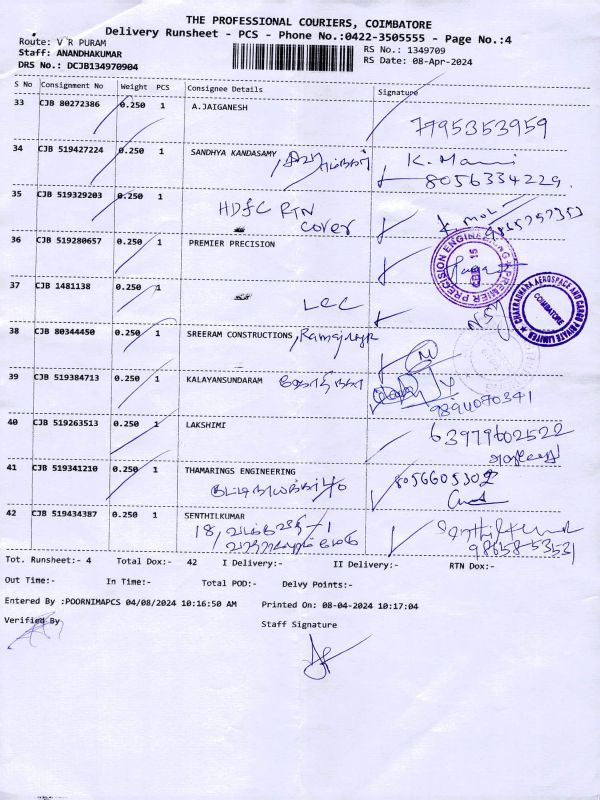 THE PROFESSIONAL COURIERS, COIMBATORE
Delivery Runsheet - PCS - Phone No.:0422-3505555 - Page No.:4
Route: V R PURAM
Staff: ANANDHAKUMAR
DRS No.: DCJB134970904
RS No.: 1349709
RS Date: 08-Apr-2024
S No Consignment No Weight PCS Consignee Details Signature
33 CJB 80272386 0.250 1 A.JAIGANESH
7795353959
34 CJB 519427224 0.250 1 SANDHYA KANDASAMY, K. Mani
8056334229.
35 CJB 519329203 0.250 1 HDFC RTN
cover
36 CJB 519280657 0.250 1 PREMIER PRECISION
37 CJB 1481138 0.250 1 LCC
38 CJB 80344450 0.250 1 SREERAM CONSTRUCTIONS,
39 CJB 519384713 0.250 1 KALAYANSUNDARAM
9894090341
40 CJB 519263513 0.250 1 LAKSHIMI
41 CJB 519341210 0.250 1 THAMARINGS ENGINEERING
42 CJB 519434387 0.250 1 SENTHILKUMAR
98658-53531
PRECISION ENGINEERING
PREMIER PRECISION
CBE 15
CHAKRADHARA AEROSPACE AND CARGO PRIVATE LIMITED
COIMBATORE
Tot. Runsheet:- 4 Total Dox:- 42 I Delivery:- II Delivery:- RTN Dox:-
Out Time:- In Time:- Total POD:- Delvy Points:-
Entered By :POORNIMAPCS 04/08/2024 10:16:50 AM Printed On: 08-04-2024 10:17:04
Verified By
Staff Signature